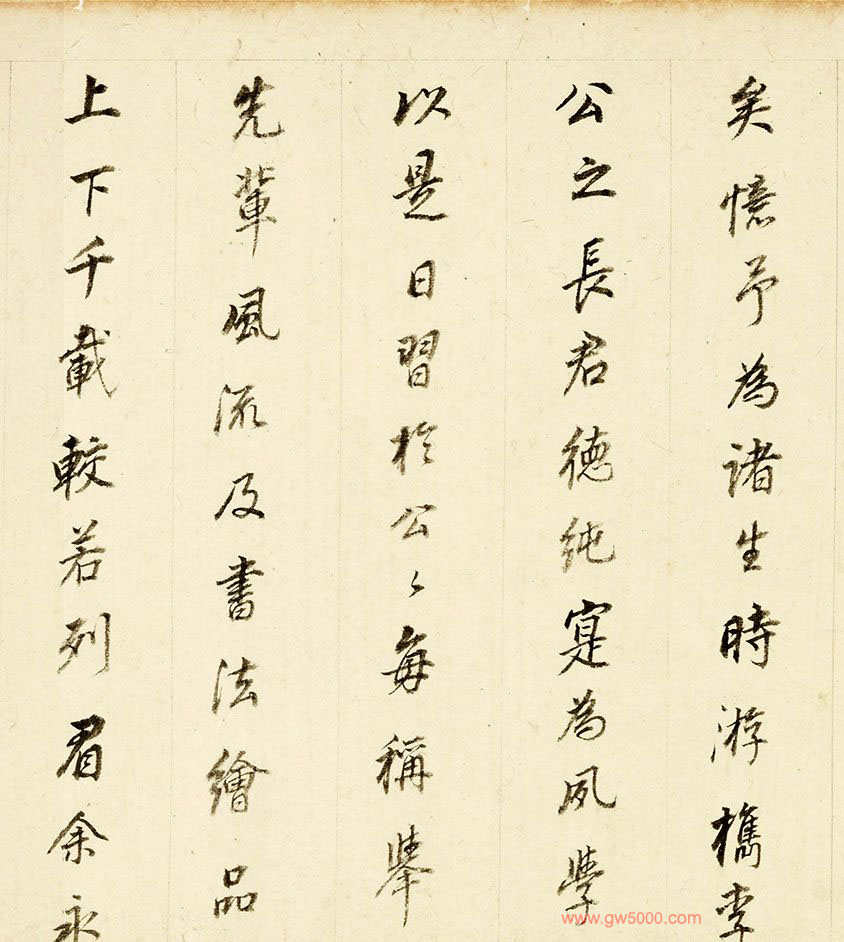 矣憶予為諸生時游檇李
公之長君德純寔為夙學
以是日習於公〻每稱舉
先輩風流及書法繪品
上下千載較若列眉余永
www.gw5000.com